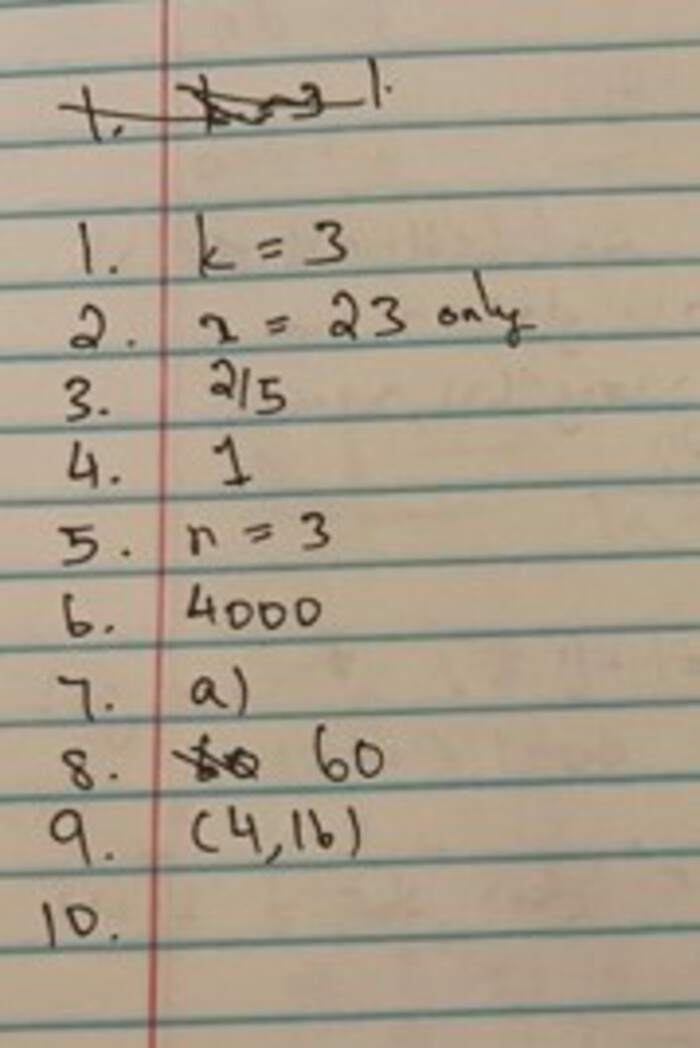 1. k = 3
2. x = 23 only
3. 2/5
4. 1
5. n = 3
6. 4000
7. a)
8. 60
9. (4,16)
10.